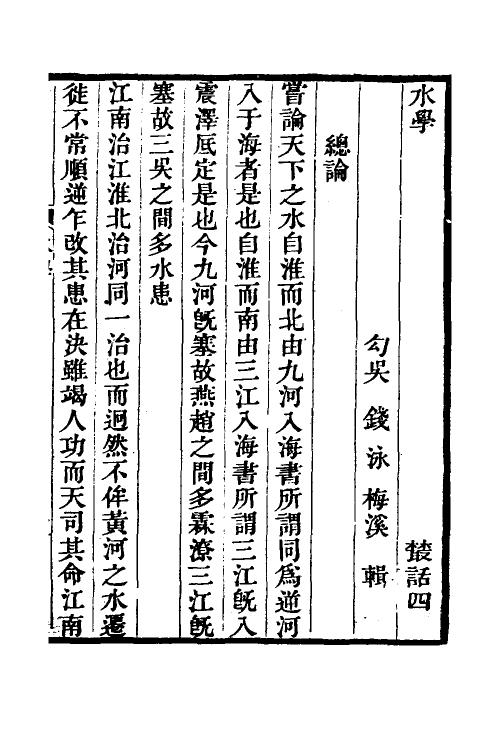 水學　叢話四
勾吳　錢泳　梅溪　輯
總論
嘗論天下之水自淮而北由九河入海書所謂同為逆河
入于海者是也自淮而南由三江入海書所謂三江旣入
震澤厎定是也今九河旣塞故燕趙之間多霖潦三江旣
塞故三吳之間多水患
江南治江淮北治河同一治也而迥然不侔黃河之水遷
徙不常順逆乍改其患在決雖竭人功而天司其命江南